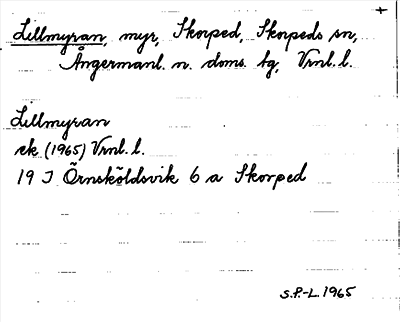 Lillmyran, myr, Skorped, Skorpeds sn,
Ångermanl. n. doms. tg, Vrnl. l.
Lillmyran
ek (1965) Vrnl. l.
19 J Örnsköldsvik 6 a Skorped
S.P.-L. 1965